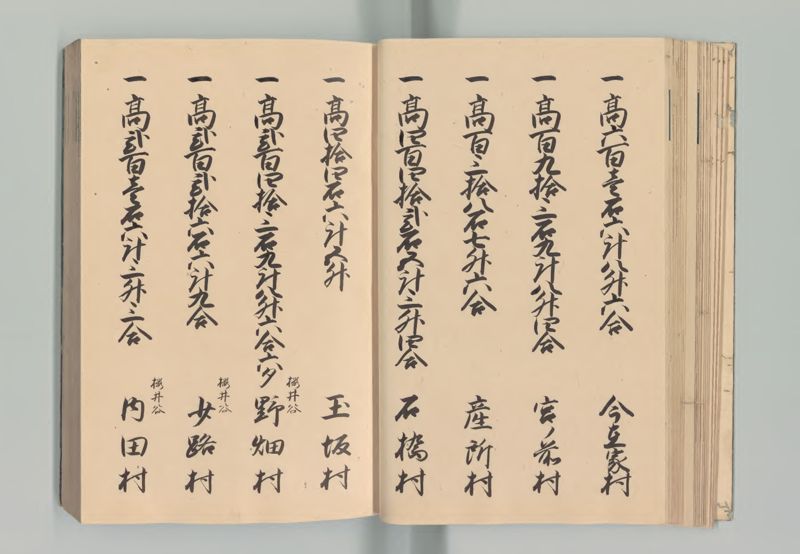 一髙六百壱石六斗八升六合 今在家村
一髙百九拾三石九斗八升四合 宮ノ前村
一髙百三拾八石七升六合 産所村
一髙四百四拾弐石五斗三升四合 石橋村
一髙四拾四石六斗五升 玉坂村
一髙弐百四拾三石九斗八升六合六夕 桜井谷 野畑村
一髙弐百弐拾六石六斗九合 桜井谷 少路村
一髙弐百壱石六斗三升三合 桜井谷 内田村